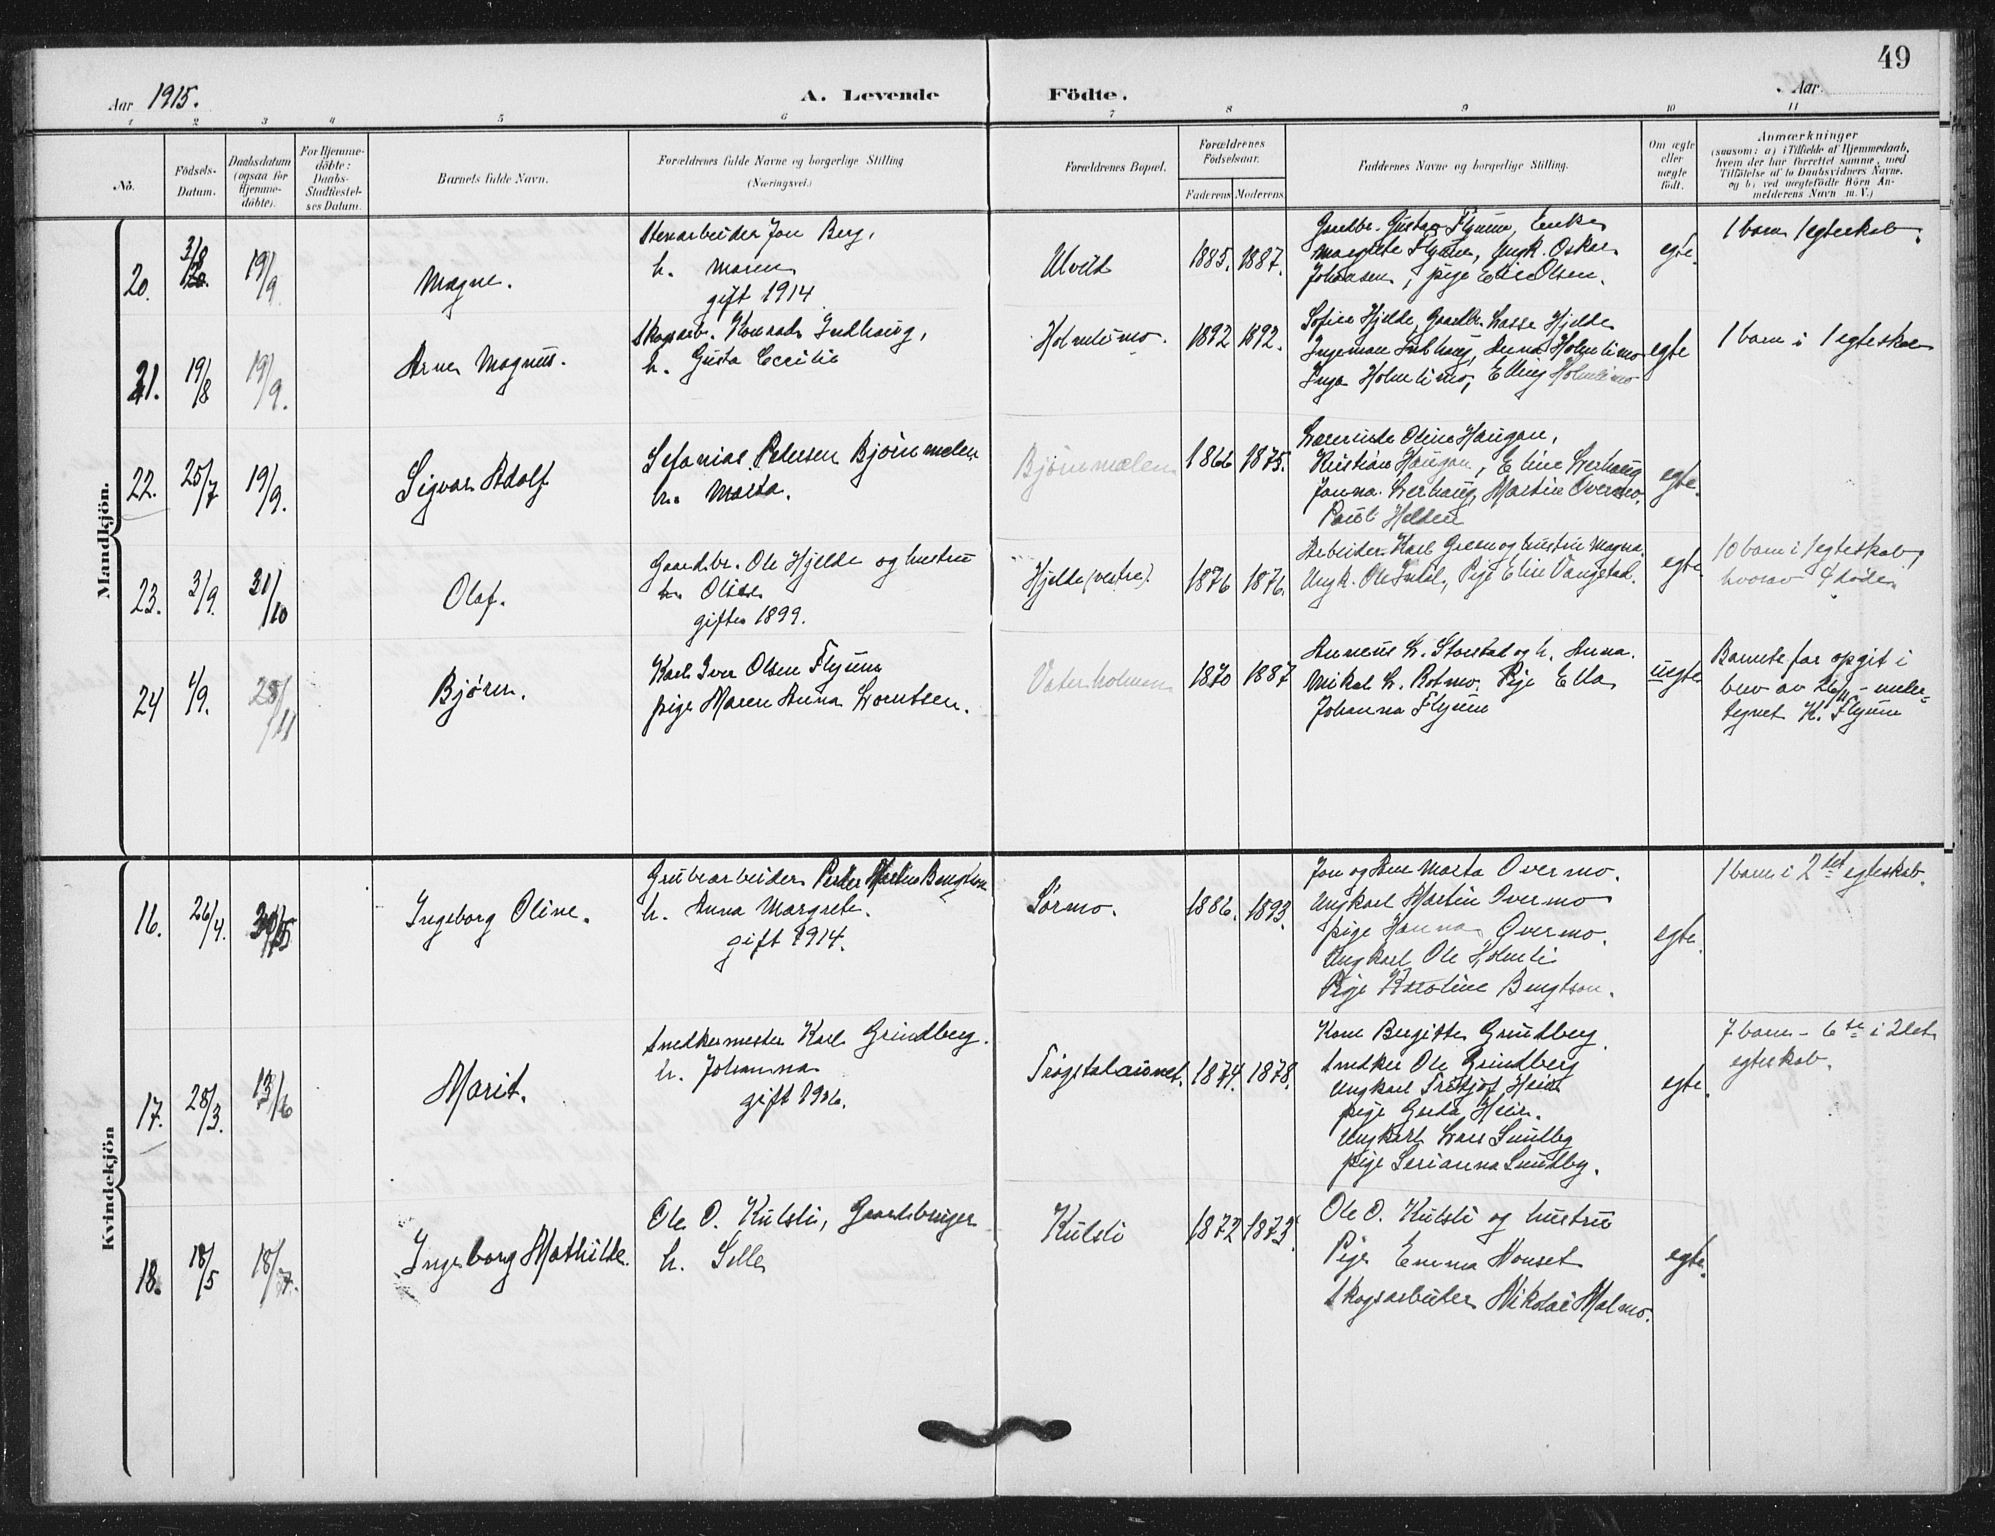 49
Aar 1915.
A. Levende Födte.
Aar
1 2 3 4 5 6 7 8 9 10 11
No.
Födsels-
Datum.
Daabsdatum
(ogsaa for
Hjemme-
döbte).
For Hjemme-
döbte:
Daabs-
Stadfæstel-
ses Datum.
Barnets fulde Navn.
Forældrenes fulde Navne og borgerlige Stilling
(Næringsvei.)
Forældrenes Bopæl.
Forældrenes
Födselsaar.
Faderens
Moderens
Faddernes Navne og borgerlige Stilling.
Om ægte
eller
uægte
födt.
Anmærkninger
(saasom: a) i Tilfælde af Hjemmedaab,
hvem der har forrettet samme, med
Tilföielse af to Daabsvidners Navne,
og b) ved uægtefödte Börn An-
melderens Navn m. V.)
Mandkjön.
20.
3/8
19/9
Magne.
Stenarbeider Jon Berg,
h. Maren
gift 1914
1885. 1887.
Gaardbr. Gustav Flyum, Enke
Margrete Flyum, Ungk. Oskar
Johansen, pige Olsen.
egte.
1 barn 1 egteskab.
21.
19/8
19/9.
Arne Magnus.
Skogsarb. Konrad Indhaug,
h. Gusta Cecilie
Holmlimo.
1892 1892.
Sofie Hjelde, Gaardbr. Lasse Hjelde
Ingeman Indhaug, Anna Holmlimo
Inga Holmlimo, Elling Holmlimo
egte
1 barn i 1 egteskab
22.
25/7
19/9.
Sigvar Adolf
Sefanias Petersen Bjørnmelen
h. Marta.
Bjørnmelen
1866 1875.
Lærerinde Oline Haugan,
Kristian Haugan, Eline Lerhaug
Janna Lerhaug, Martin Overmo,
Paul Helden
egte.
23.
3/9.
31/10
Olaf.
Gaardbr. Ole Hjelde og hustru
h. Olise
gifte 1899.
Hjelde (vestre).
1876 1876.
Arbeider Karl og hustru Magna.
Ungk. Ole Indal, Pige Elin Vangstad.
egte
10 barn i 1 egteskab,
hvorav 4 døde
24
1/9.
28/11
Bjørn.
Karl Iver Olsen Flyum
pige Maren Anna Lorntsen.
Vaterholmen
1870 1887
Anneus L. Storstad og h. Anna.
Mikal L. Rotmo. Pige Ella
Johanna Flyum
uegte
Barnets far opgit i
brev av 26/11 - under-
tegnet K. Flyum
Kvindekjön
16.
26/4.
Ingeborg Oline.
Grubearbeider Peder Martin Bengtson
h. Anna Margrete.
gift 1914.
Sørmo.
1886. 1893.
Jon og Ane Marta Overmo.
Ungkarl Martin Overmo
pige Hanna Overmo.
Ungkarl Ole Holmli
Pige Karoline Bengtson.
egte.
1 barn i 2det egteskab.
17.
28/3.
13/6
Marit.
Snedkermester Karl Grindberg.
h. Johanna
gift 1906.
1874. 1878.
Kone Bergitte Grindberg.
Snedker Ole Grindberg
Ungkarl Fritjof Heir
pige Gerda Heir.
Ungkarl Lars Sundby
pige Serianna Sundby.
egte.
7 barn - 6te i 2det
egteskab.
18.
18/5
18/7.
Ingeborg Mathilde.
Ole O. Kulsli, Gaardbruger
h. Selle
Kulsli
1872 1873.
Ole O. Kulsli og hustru
Pige Emma Monset
Skogsarbeider Nikolai Malmo.
egte.